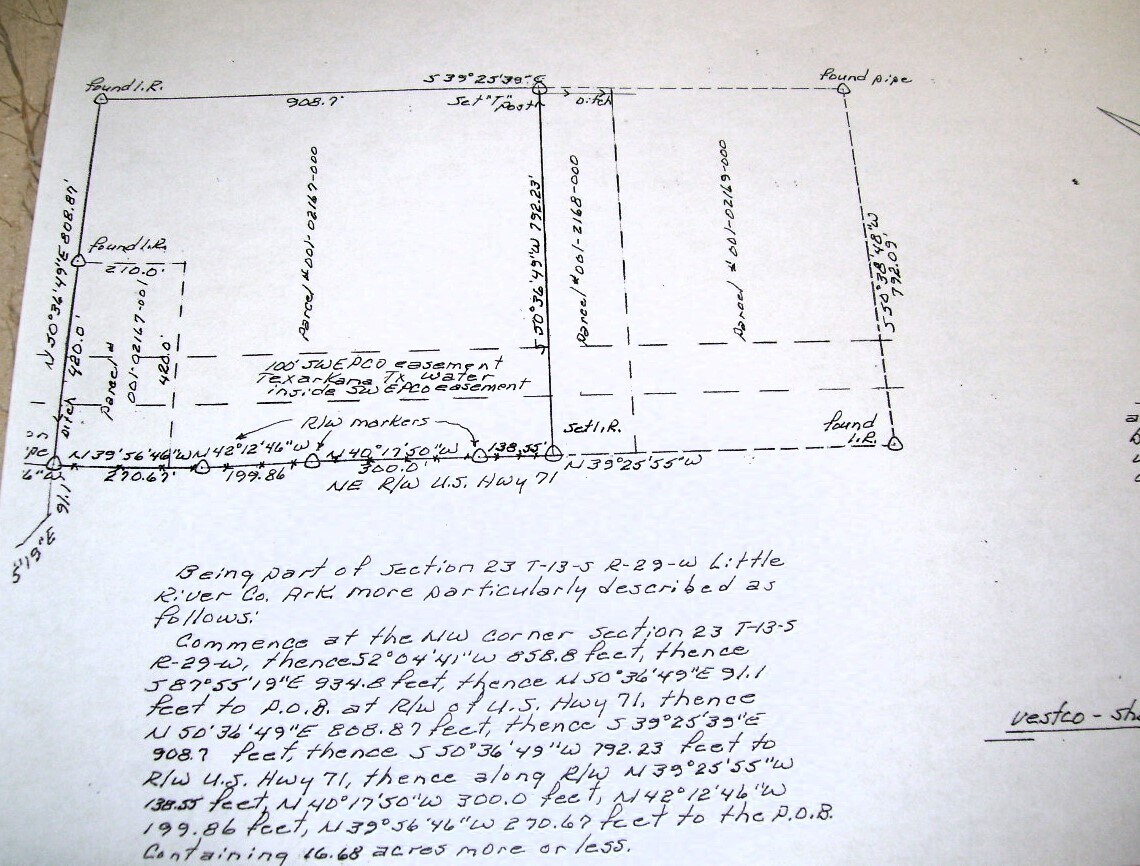 found I.R.
S 39°25'39"E
found pipe
908.7'
Set "T" Post
Ditch
N 50°36'49"E 808.87'
Parcel #001-02167-000
S 50°36'49"W 792.23'
Parcel #001-2168-000
Parcel #001-02169-000
S 50°38'48"W
792.09'
found I.R.
210.0'
Ditch
420.0'
Parcel #
001-02167-001
420.0'
100' SWEPCO easement
Texarkana Tx water
inside SWEPCO easement
R/W markers
Set I.R.
found
I.R.
N 39°56'46"W
N 42°12'46"W
N 40°17'50"W
138.55'
N 39°25'55"W
270.67'
199.86
300.0'
NE R/W U.S. Hwy 71
91.1'
5'19"E
Being part of section 23 T-13-S R-29-W Little
River Co. Ark. more particularly described as
follows:
Commence at the NW Corner Section 23 T-13-S
R-29-W, thence S2°04'41"W 858.8 feet, thence
S 87°55'19"E 934.8 feet, thence N 50°36'49"E 91.1
feet to P.O.B. at R/W of U.S. Hwy 71, thence
N 50°36'49"E 808.87 feet, thence S 39°25'39"E
908.7 feet, thence S 50°36'49"W 792.23 feet to
R/W U.S. Hwy 71, thence along R/W N 39°25'55"W
138.55 feet, N 40°17'50"W 300.0 feet, N 42°12'46"W
199.86 feet, N 39°56'46"W 270.67 feet to the P.O.B.
Containing 16.68 acres more or less.
Vestco - Sh